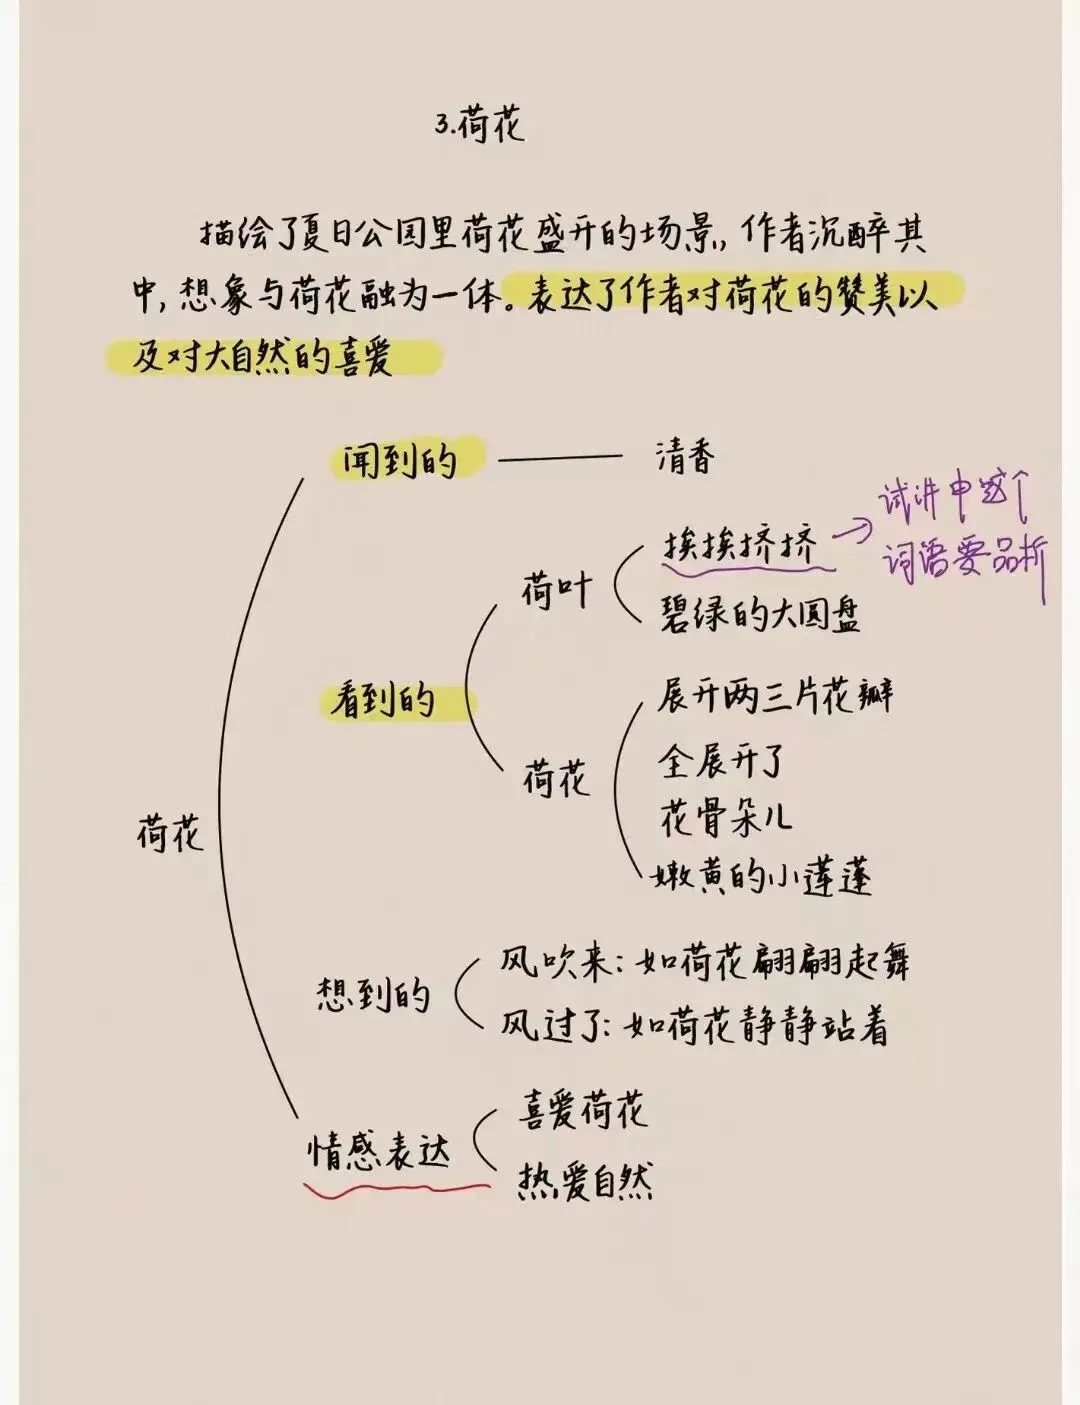 3.荷花
描绘了夏日公园里荷花盛开的场景,作者沉醉其
中,想象与荷花融为一体。表达了作者对荷花的赞美以
及对大自然的喜爱
闻到的 清香
挨挨挤挤 → 试讲中这个
词语要品析
荷叶
碧绿的大圆盘
看到的
展开两三片花瓣
全展开了
荷花
花骨朵儿
荷花
嫩黄的小莲蓬
风吹来:如荷花翩翩起舞
想到的
风过了:如荷花静静站着
喜爱荷花
情感表达
热爱自然